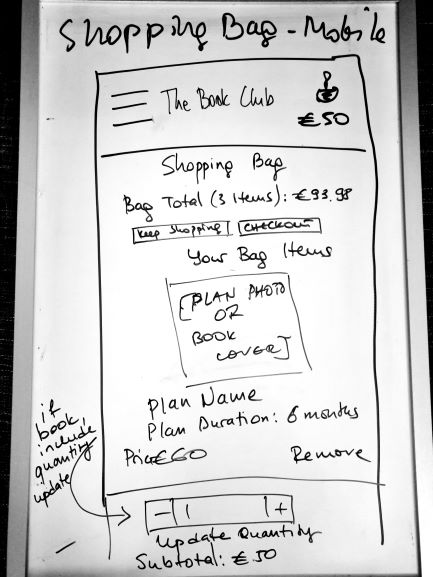 Shopping Bag - Mobile
The Book Club
€50
Shopping Bag
Bag Total (3 Items): €93.98
Keep Shopping CHECKOUT
Your Bag Items
[PLAN PHOTO
OR
BOOK
COVER]
Plan Name
Plan Duration: 6 months
Price €60 Remove
if
book,
include
quantity
update
- 1 +
Update Quantity
Subtotal: €50